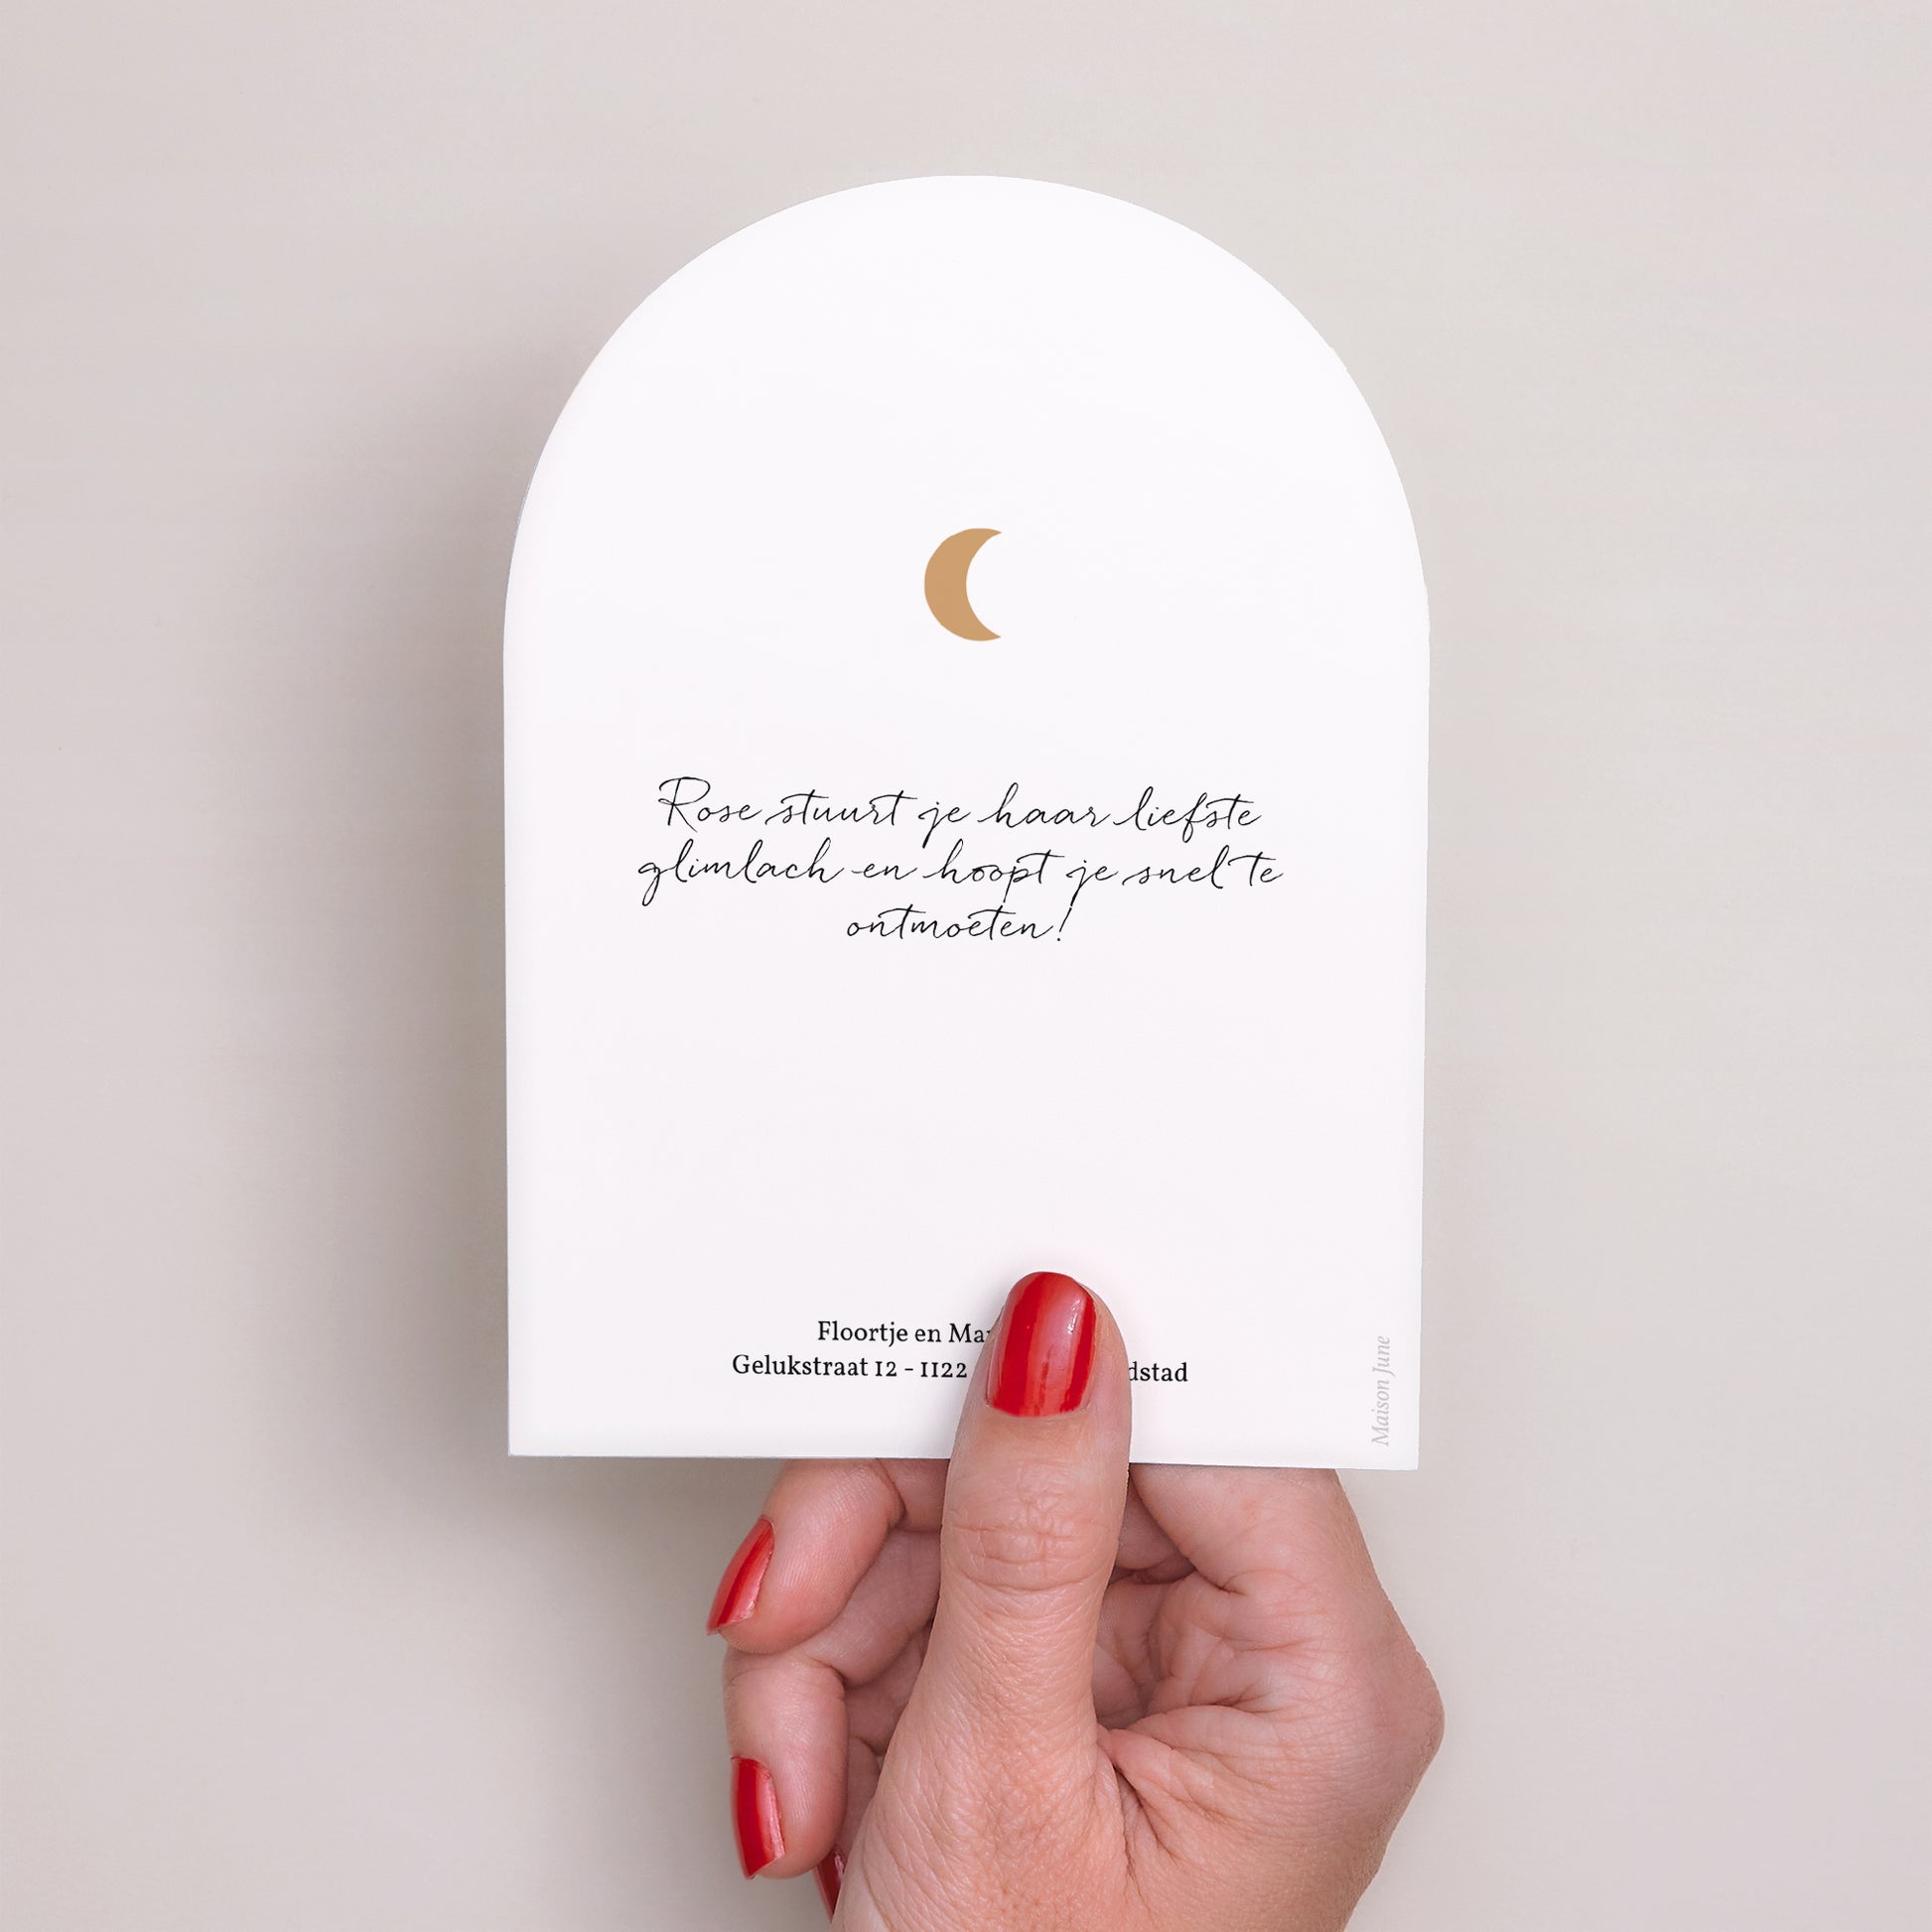 Rose stuurt je haar liefste
glimlach en hoopt je snel te
ontmoeten!
Floortje en
Gelukstraat 12 - 1122
Maison June